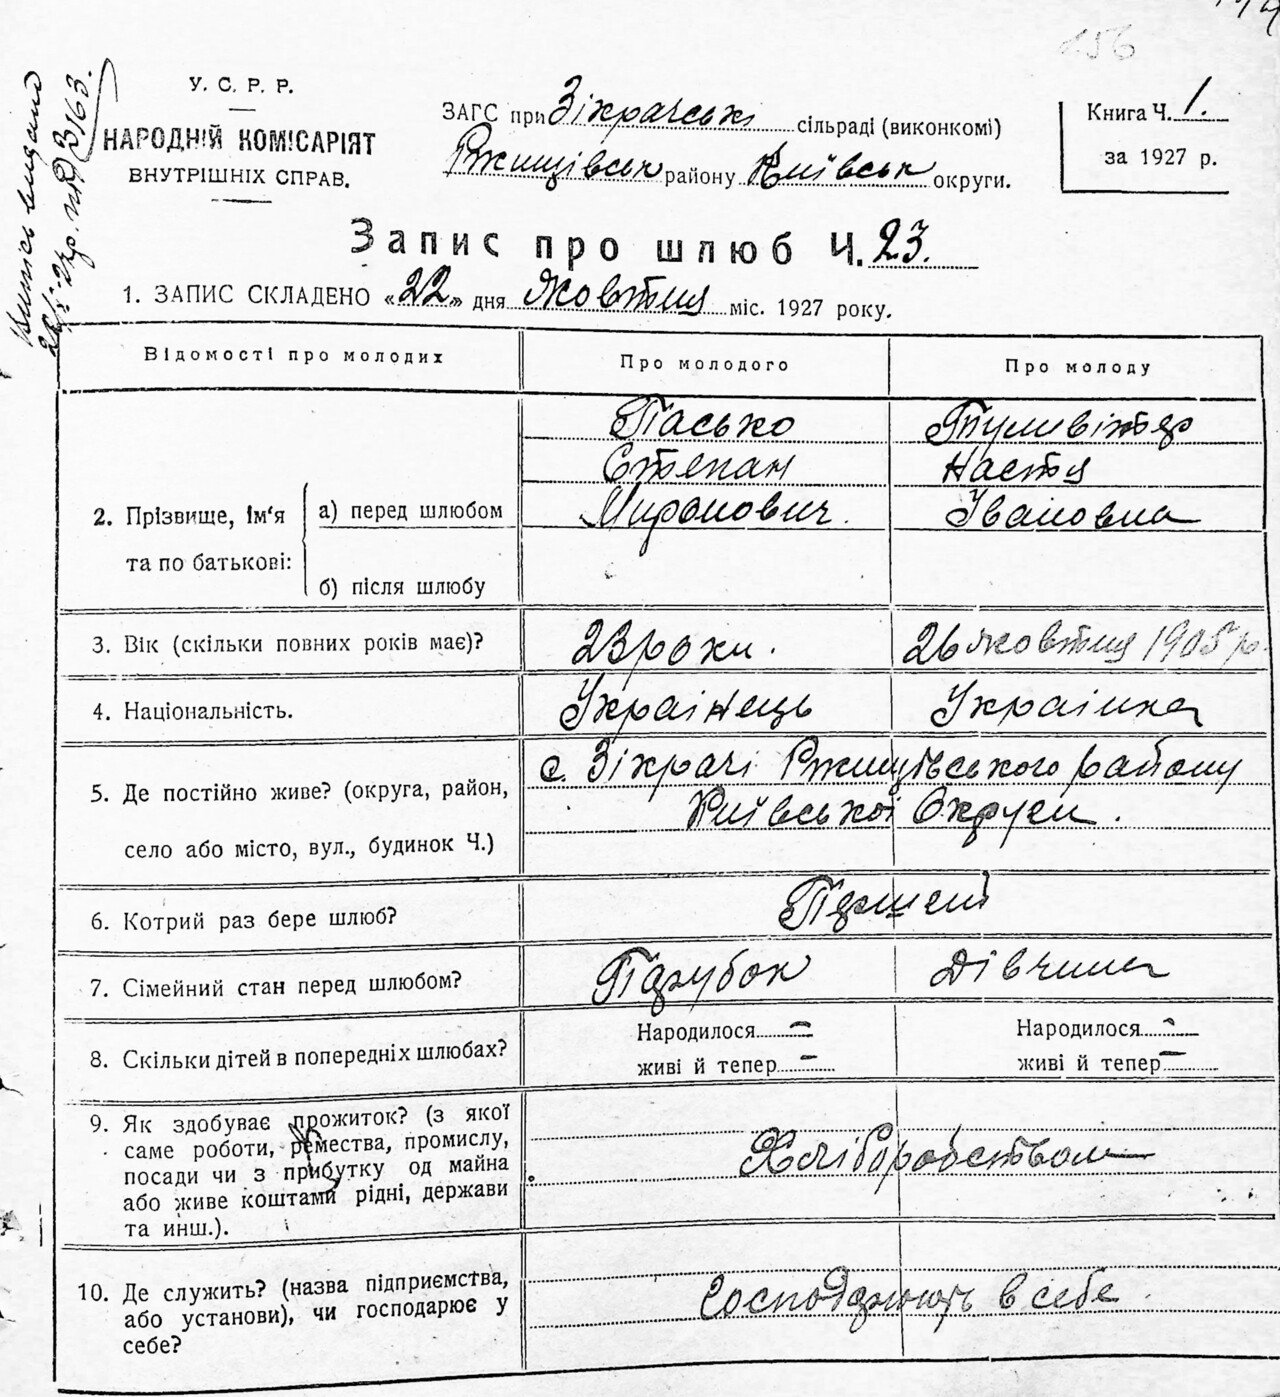 156
У. С. Р. Р.
НАРОДНІЙ КОМІСАРІЯТ
ВНУТРІШНІХ СПРАВ.
ЗАГС при Зікрачські сільраді (виконкомі)
Ржищівськ району Київськ округи.
Книга Ч. 1.
за 1927 р.
Запис про шлюб Ч. 23.
1. ЗАПИС СКЛАДЕНО «22» дня Жовтня міс. 1927 року.
Відомості про молодих
Про молодого
Про молоду
2. Прізвище, ім'я та по батькові:
а) перед шлюбом
б) після шлюбу
Пасько
Степан
Миронович.
Туливітер
Настя
Івановна
3. Вік (скільки повних років має)?
23 роки.
26 жовтня 1905 р.
4. Національність.
Українець
Українка
5. Де постійно живе? (округа, район,
село або місто, вул., будинок Ч.)
с. Зікрачі Ржищівського району
Київської Округи.
6. Котрий раз бере шлюб?
Перший
7. Сімейний стан перед шлюбом?
Парубок
Дівчина
8. Скільки дітей в попередніх шлюбах?
Народилося —
живі й тепер —
Народилося —
живі й тепер —
9. Як здобуває прожиток? (з якої
саме роботи, ремества, промислу,
посади чи з прибутку од майна
або живе коштами рідні, держави
та инш.).
Хліборобством
10. Де служить? (назва підприємства,
або установи), чи господарює у
себе?
Господарюють в себе.